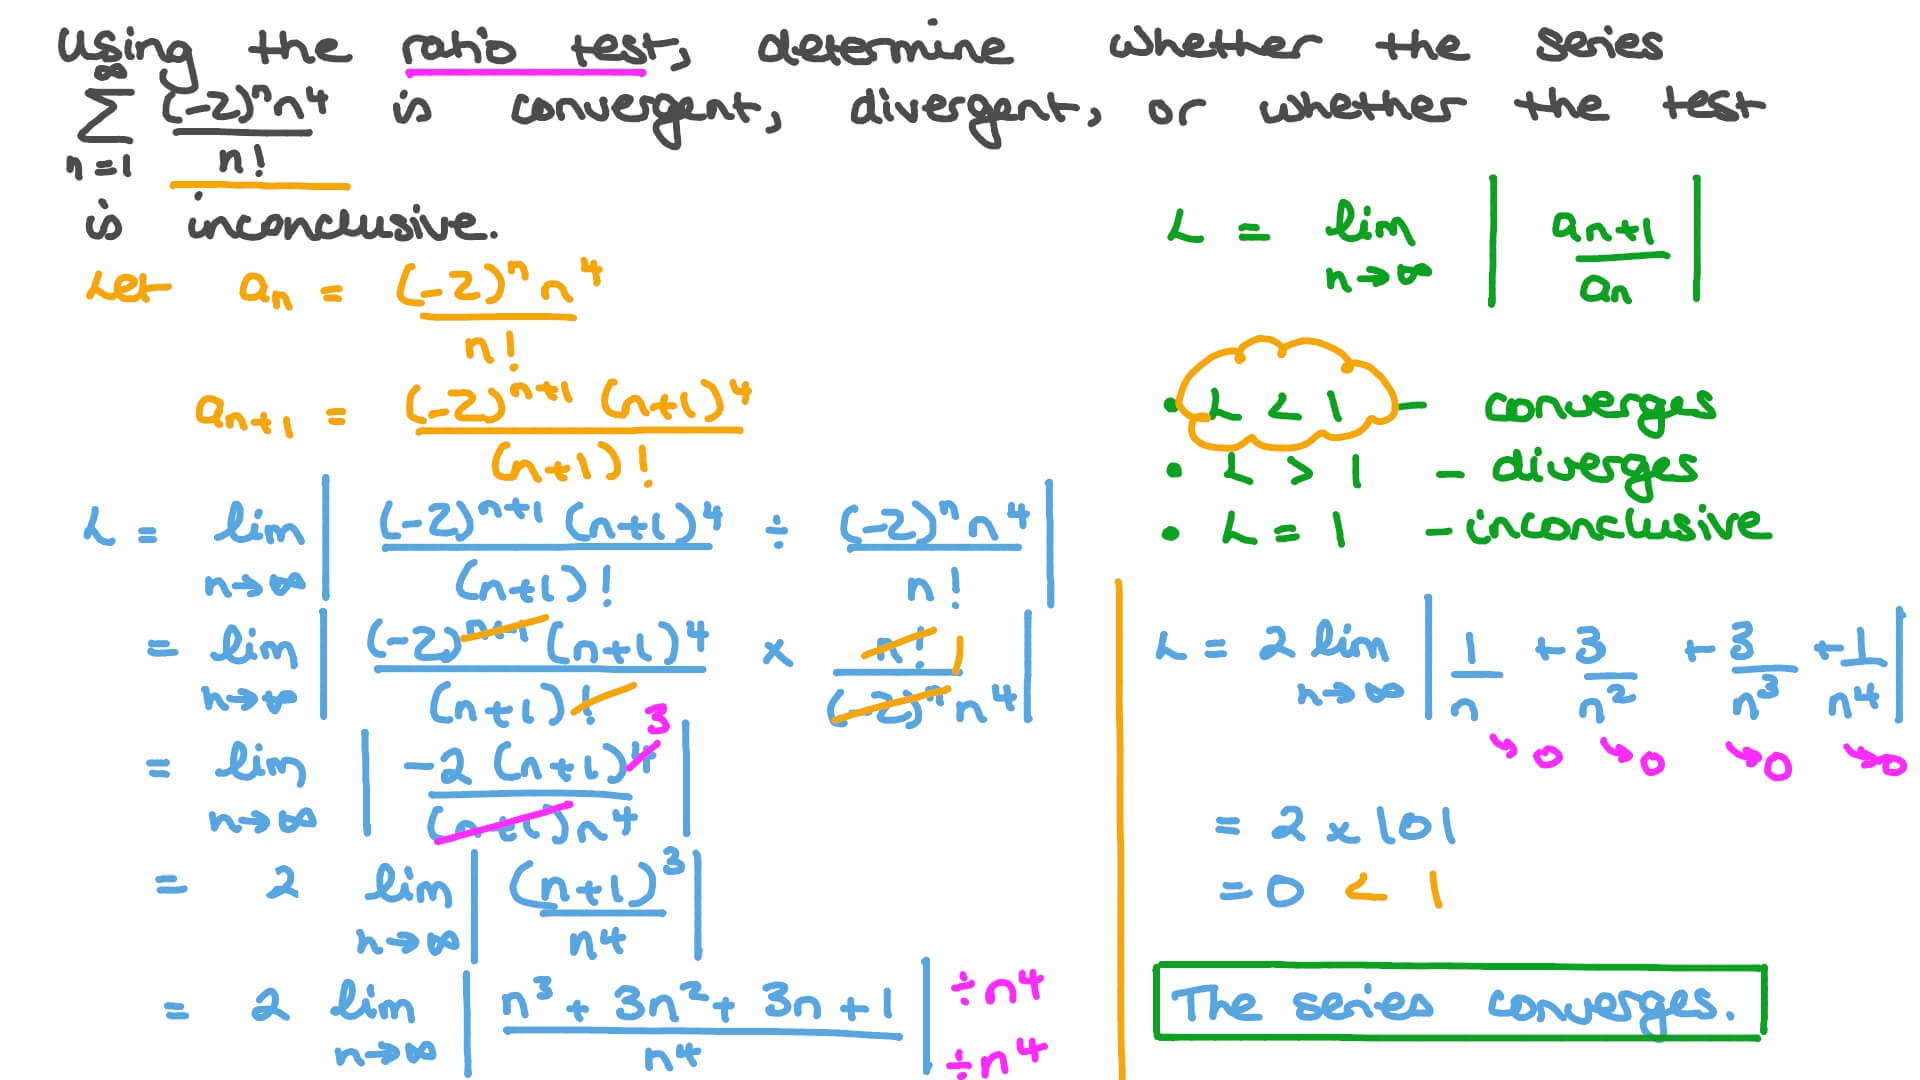 Using the ratio test, determine whether the series
∑_{n=1}^{∞} (-2)^n n^4 / n! is convergent, divergent, or whether the test
is inconclusive.
Let a_n = (-2)^n n^4 / n!
a_{n+1} = (-2)^{n+1} (n+1)^4 / (n+1)!
L = lim_{n→∞} | (-2)^{n+1} (n+1)^4 / (n+1)! ÷ (-2)^n n^4 / n! |
= lim_{n→∞} | (-2)^{n+1} (n+1)^4 / (n+1)! × n! / (-2)^n n^4 |
1
= lim_{n→∞} | -2 (n+1)^4 / (n+1) n^4 |
3
= 2 lim_{n→∞} | (n+1)^3 / n^4 |
= 2 lim_{n→∞} | n^3 + 3n^2 + 3n + 1 / n^4 | ÷n^4 ÷n^4
L = lim_{n→∞} | a_{n+1} / a_n |
• L < 1 – converges
• L > 1 – diverges
• L = 1 – inconclusive
L = 2 lim_{n→∞} | 1/n + 3/n^2 + 3/n^3 + 1/n^4 |
→0 →0 →0 →0
= 2 × |0|
= 0 < 1
The series converges.